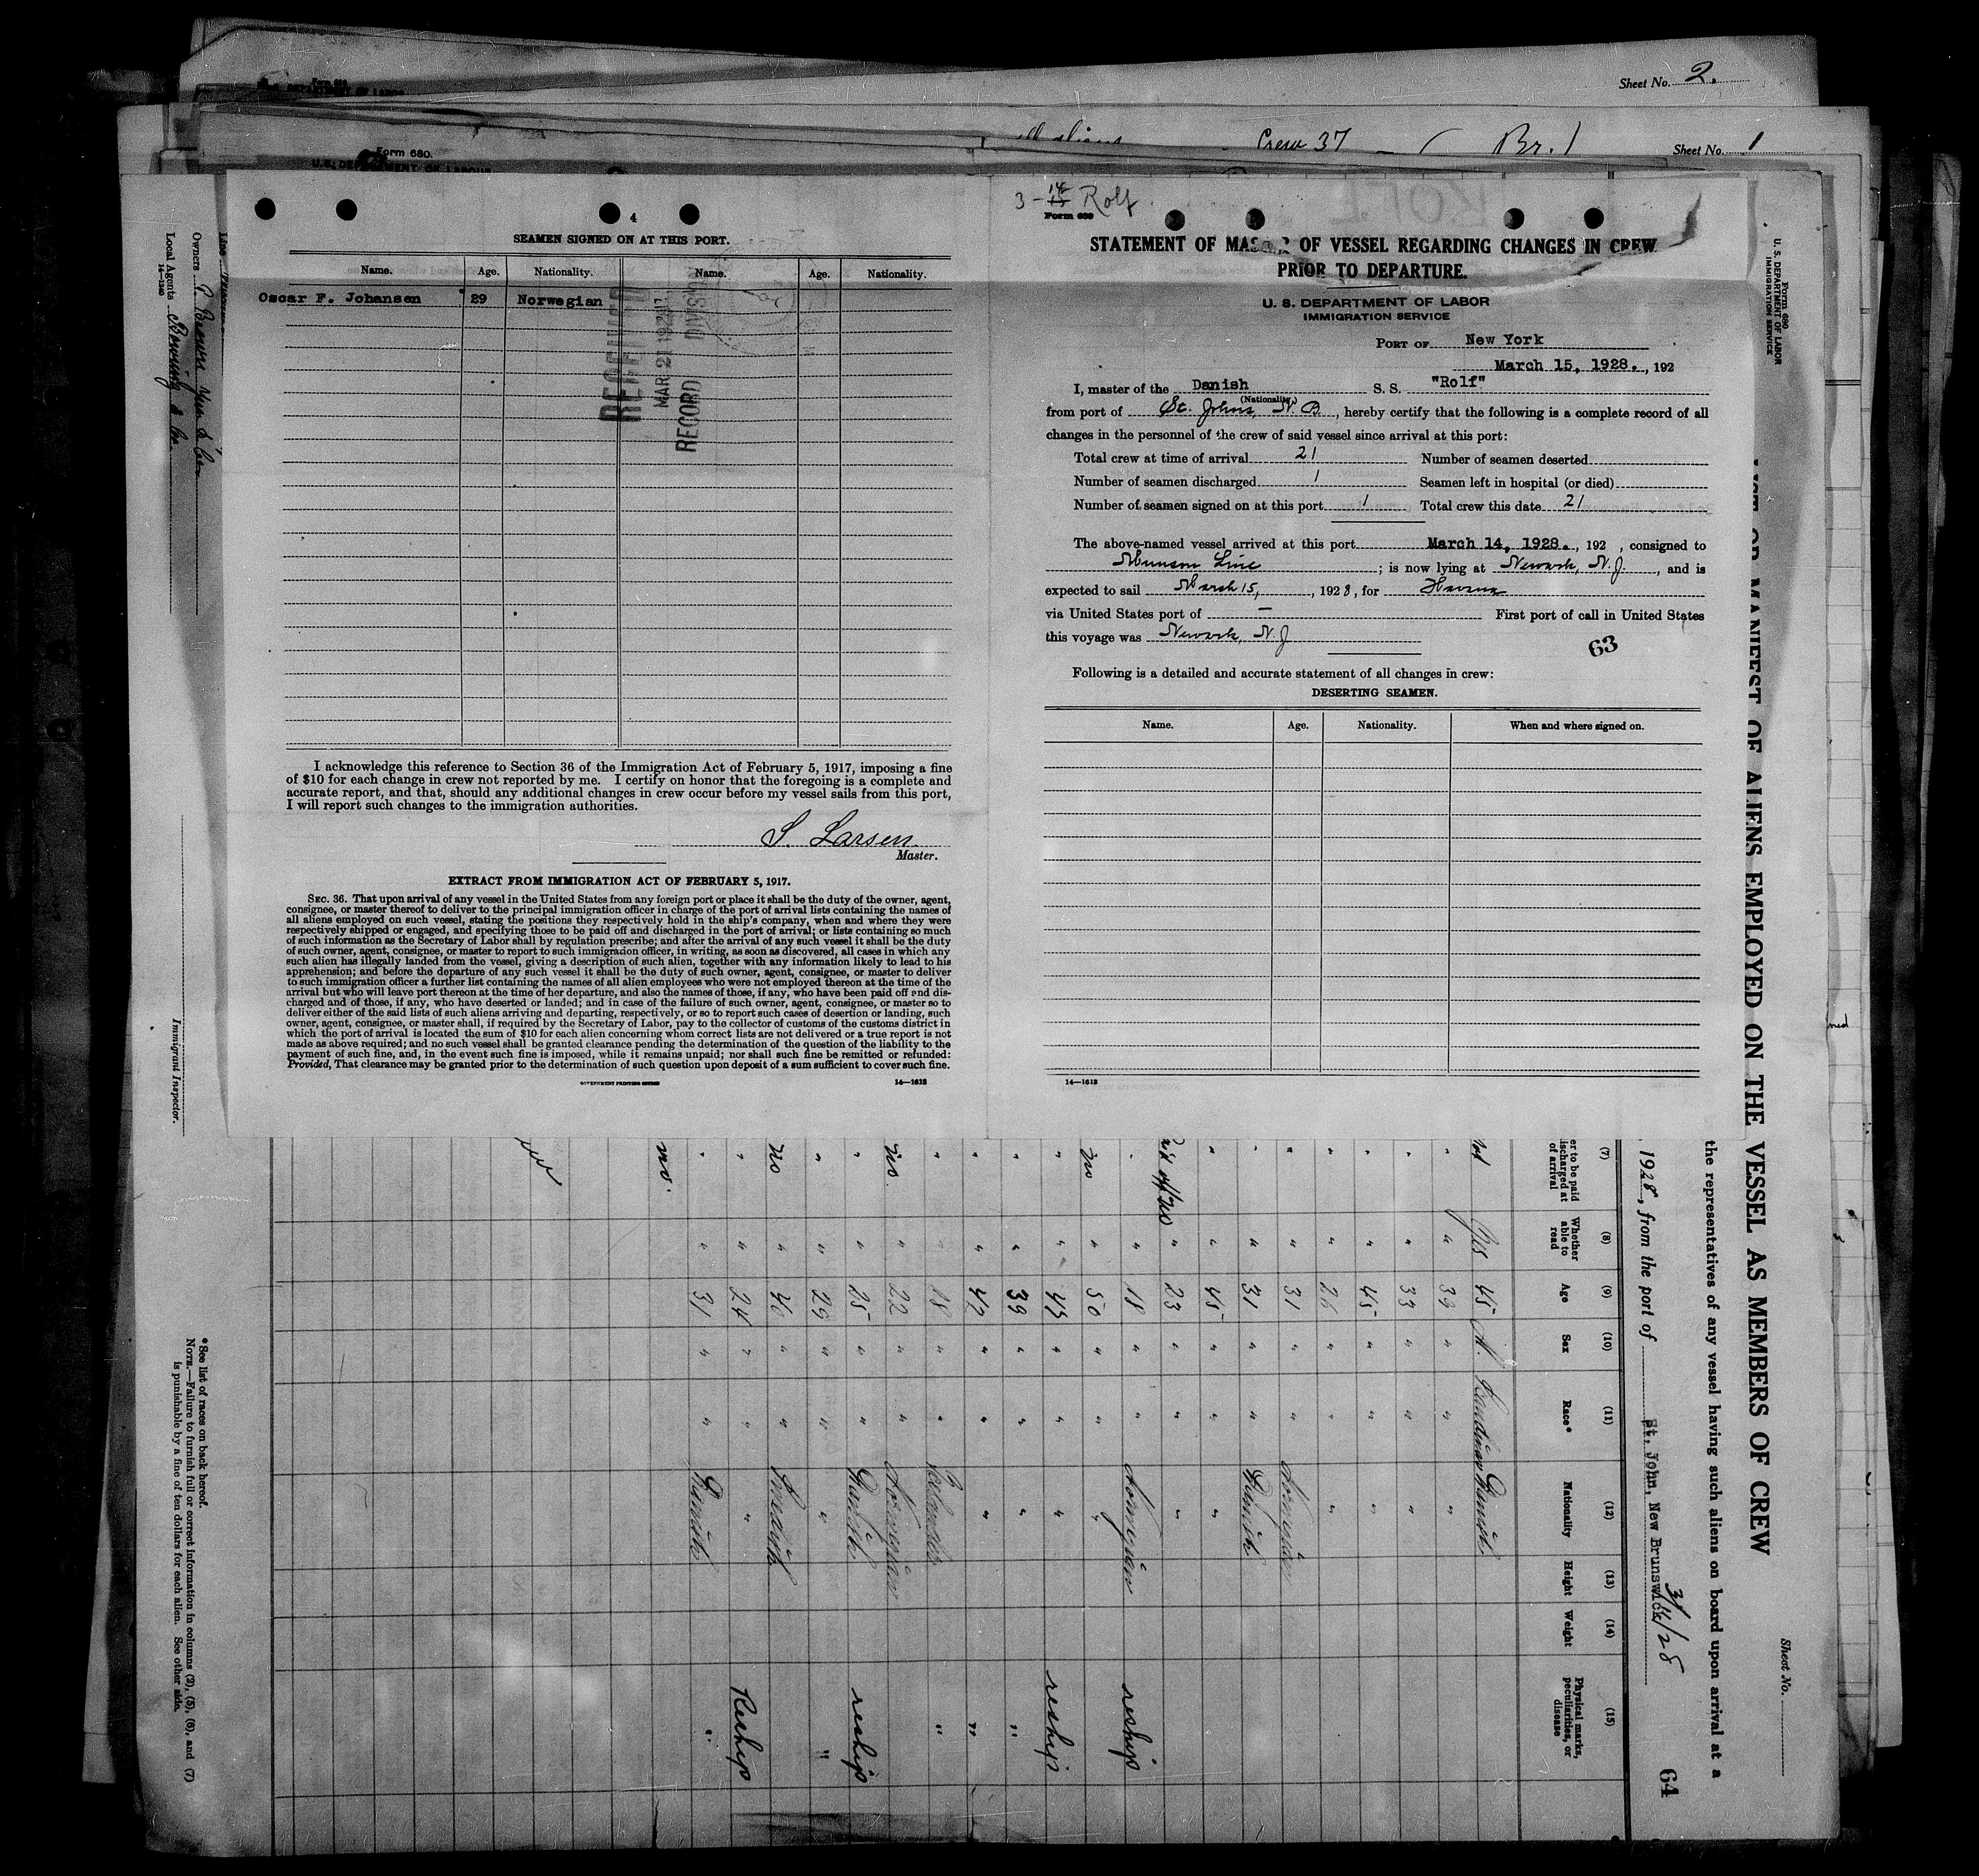 Sheet No. 2.
Crew 37 — Br. 1
Sheet No. 1
Form 680.
U.S. DEPARTMENT OF LABOR
4
SEAMEN SIGNED ON AT THIS PORT.
Name. Age. Nationality. Name. Age. Nationality.
Oscar F. Johansen 29 Norwegian
RECEIVED
MAR 21 1928
RECORD DIVISION
I acknowledge this reference to Section 36 of the Immigration Act of February 5, 1917, imposing a fine
of $10 for each change in crew not reported by me. I certify on honor that the foregoing is a complete and
accurate report, and that, should any additional changes in crew occur before my vessel sails from this port,
I will report such changes to the immigration authorities.
S. Larsen
Master.
EXTRACT FROM IMMIGRATION ACT OF FEBRUARY 5, 1917.
SEC. 36. That upon arrival of any vessel in the United States from any foreign port or place it shall be the duty of the owner, agent,
consignee, or master thereof to deliver to the principal immigration officer in charge of the port of arrival lists containing the names of
all aliens employed on such vessel, stating the positions they respectively hold in the ship's company, when and where they were
respectively shipped or engaged, and specifying those to be paid off and discharged in the port of arrival; or lists containing so much
of such information as the Secretary of Labor shall by regulation prescribe; and after the arrival of any such vessel it shall be the duty
of such owner, agent, consignee, or master to report to such immigration officer, in writing, as soon as discovered, all cases in which any
such alien has illegally landed from the vessel, giving a description of such alien, together with any information likely to lead to his
apprehension; and before the departure of any such vessel it shall be the duty of such owner, agent, consignee, or master to deliver
to such immigration officer a further list containing the names of all alien employees who were not employed thereon at the time of the
arrival but who will leave port thereon at the time of her departure, and also the names of those, if any, who have been paid off and dis-
charged and of those, if any, who have deserted or landed; and in case of the failure of such owner, agent, consignee, or master so to
deliver either of the said lists of such aliens arriving and departing, respectively, or so to report such cases of desertion or landing, such
owner, agent, consignee, or master shall, if required by the Secretary of Labor, pay to the collector of customs of the customs district in
which the port of arrival is located the sum of $10 for each alien concerning whom correct lists are not delivered or a true report is not
made as above required; and no such vessel shall be granted clearance pending the determination of the question of the liability to the
payment of such fine, and, in the event such fine is imposed, while it remains unpaid; nor shall such fine be remitted or refunded:
Provided, That clearance may be granted prior to the determination of such question upon deposit of a sum sufficient to cover such fine.
GOVERNMENT PRINTING OFFICE 14—1613
3-14 Rolf
Form 689
STATEMENT OF MASTER OF VESSEL REGARDING CHANGES IN CREW
PRIOR TO DEPARTURE.
U. S. DEPARTMENT OF LABOR
IMMIGRATION SERVICE
PORT OF New York
March 15, 1928. , 192
I, master of the Danish S. S. "Rolf"
(Nationality)
from port of St. Johns, N. B. , hereby certify that the following is a complete record of all
changes in the personnel of the crew of said vessel since arrival at this port:
Total crew at time of arrival 21 Number of seamen deserted
Number of seamen discharged 1 Seamen left in hospital (or died)
Number of seamen signed on at this port 1 Total crew this date 21
The above-named vessel arrived at this port March 14, 1928. , 192 , consigned to
Munson Line ; is now lying at Newark, N. J. , and is
expected to sail March 15, , 1928, for Havana
via United States port of — First port of call in United States
this voyage was Newark, N. J
63
Following is a detailed and accurate statement of all changes in crew:
DESERTING SEAMEN.
Name. Age. Nationality. When and where signed on.
14—1613
Form 680
U. S. DEPARTMENT OF LABOR
IMMIGRATION SERVICE
Sheet No.
OR MANIFEST OF ALIENS EMPLOYED ON THE VESSEL AS MEMBERS OF CREW
the representatives of any vessel having such aliens on board upon arrival at a
1928, from the port of St. John, New Brunswick 3/11/28
64
(7) (8) (9) (10) (11) (12) (13) (14) (15)
er to be paid
discharged at
of arrival
Whether
able to
read
Age
Sex
Race*
Nationality
Height
Weight
Physical marks,
peculiarities, or
disease
Yes 45 Danish
" 39 " " "
" 33 " " "
" 45 " " "
" 26 " " "
" 31 " " Norwegian
" 31 " " Danish
" 45 " " "
" 23 " " "
" 18 " " Norwegian reship
no " 50 " " "
" 43 " " " reship
" 39 " " " "
" 42 " " " "
" 18 " " "
no " 22 " " Norwegian
" 25 " " Danish reship
" 29 " " " "
no " 46 " " Swedish
" 24 " " " Reship
no. " 31 " " Danish "
Owners
Local Agents Bowring & Co.
14—1240
Immigrant Inspector.
*See list of races on back hereof.
NOTE.—Failure to furnish full or correct information in columns (2), (5), (6), and (7)
is punishable by a fine of ten dollars for each alien. See other side.